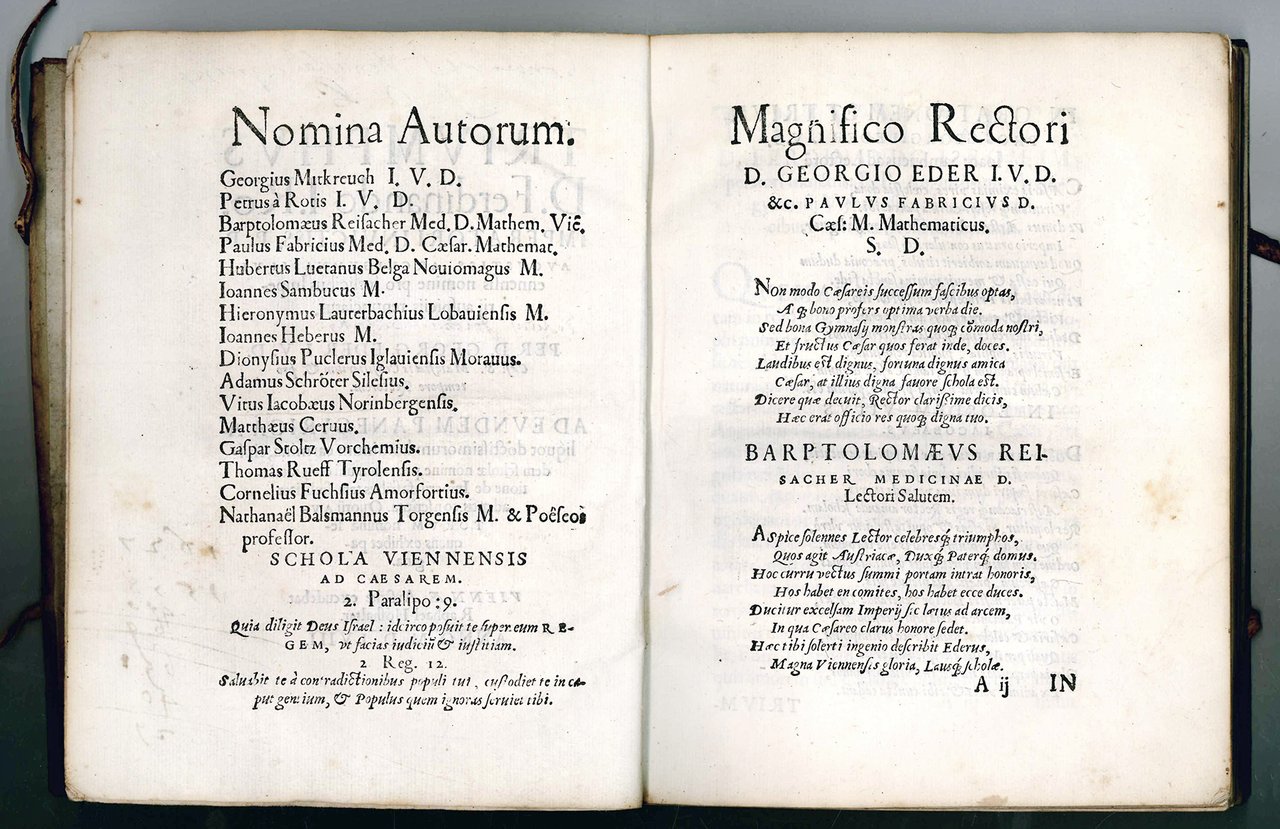 Nomina Autorum.
Georgius Mitkreuch I. V. D.
Petrus à Rotis I. V. D.
Barptolomæus Reisacher Med. D. Mathem. Viẽ.
Paulus Fabricius Med. D. Cæsar. Mathemat.
Hubertus Luetanus Belga Nouiomagus M.
Ioannes Sambucus M.
Hieronymus Lauterbachius Lobauiensis M.
Ioannes Heberus M.
Dionysius Puclerus Iglauiensis Morauus.
Adamus Schröter Silesius.
Vitus Iacobæus Norinbergensis.
Matthæus Ceruus.
Gaspar Stoltz Vorchemius.
Thomas Rueff Tyrolensis.
Cornelius Fuchsius Amorfortius.
Nathanaël Balsmannus Torgensis M. & Poëseos
professor.
SCHOLA VIENNENSIS
AD CAESAREM.
2. Paralipo: 9.
Quia diligit Deus Israel: idcirco posuit te super eum RE-
GEM, vt facias iudiciũ & iustitiam.
2 Reg. 12.
Saluabit te à contradictionibus populi tui, custodiet te in ca-
put gentium, & Populus quem ignoras seruiet tibi.
Magnifico Rectori
D. GEORGIO EDER I. V. D.
&c. PAVLVS FABRICIVS D.
Cæs: M. Mathematicus.
S. D.
Non modo Cæsareis successum fascibus optas,
A q́ bono profers optima verba die.
Sed bona Gymnasij monstras quoq́ cõmoda nostri,
Et fructus Cæsar quos ferat inde, doces.
Laudibus est dignus, fortuna dignus amica
Cæsar, at illius digna fauore schola est.
Dicere quæ decuit, Rector clarissime dicis,
Hæc erat officio res quoq́ digna tuo.
BARPTOLOMÆVS REI-
SACHER MEDICINAE D.
Lectori Salutem.
Aspice solennes Lector celebresq́ triumphos,
Quos agit Austriacæ, Duxq́ Paterq́ domus.
Hoc curru vectus summi portam intrat honoris,
Hos habet en comites, hos habet ecce duces.
Ducitur excelsam Imperij sic lætus ad arcem,
In qua Cæsareo clarus honore sedet.
Hæc tibi solerti ingenio describit Ederus,
Magna Viennensis gloria, Lausq́ scholæ.
A ij IN